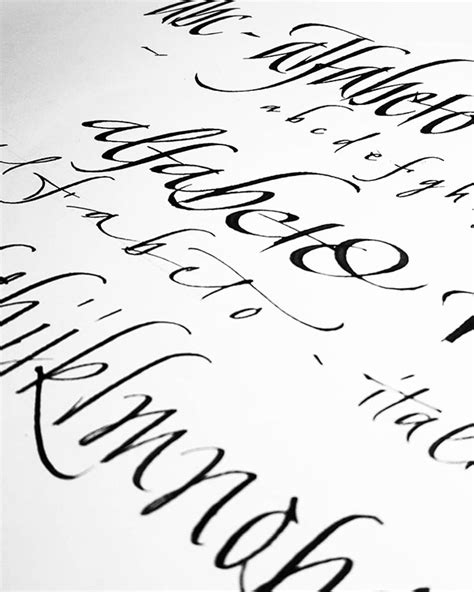 abc - alfabeto
a b c d e f g h
alfabeto
alfabeto
- ital
hijklmnop